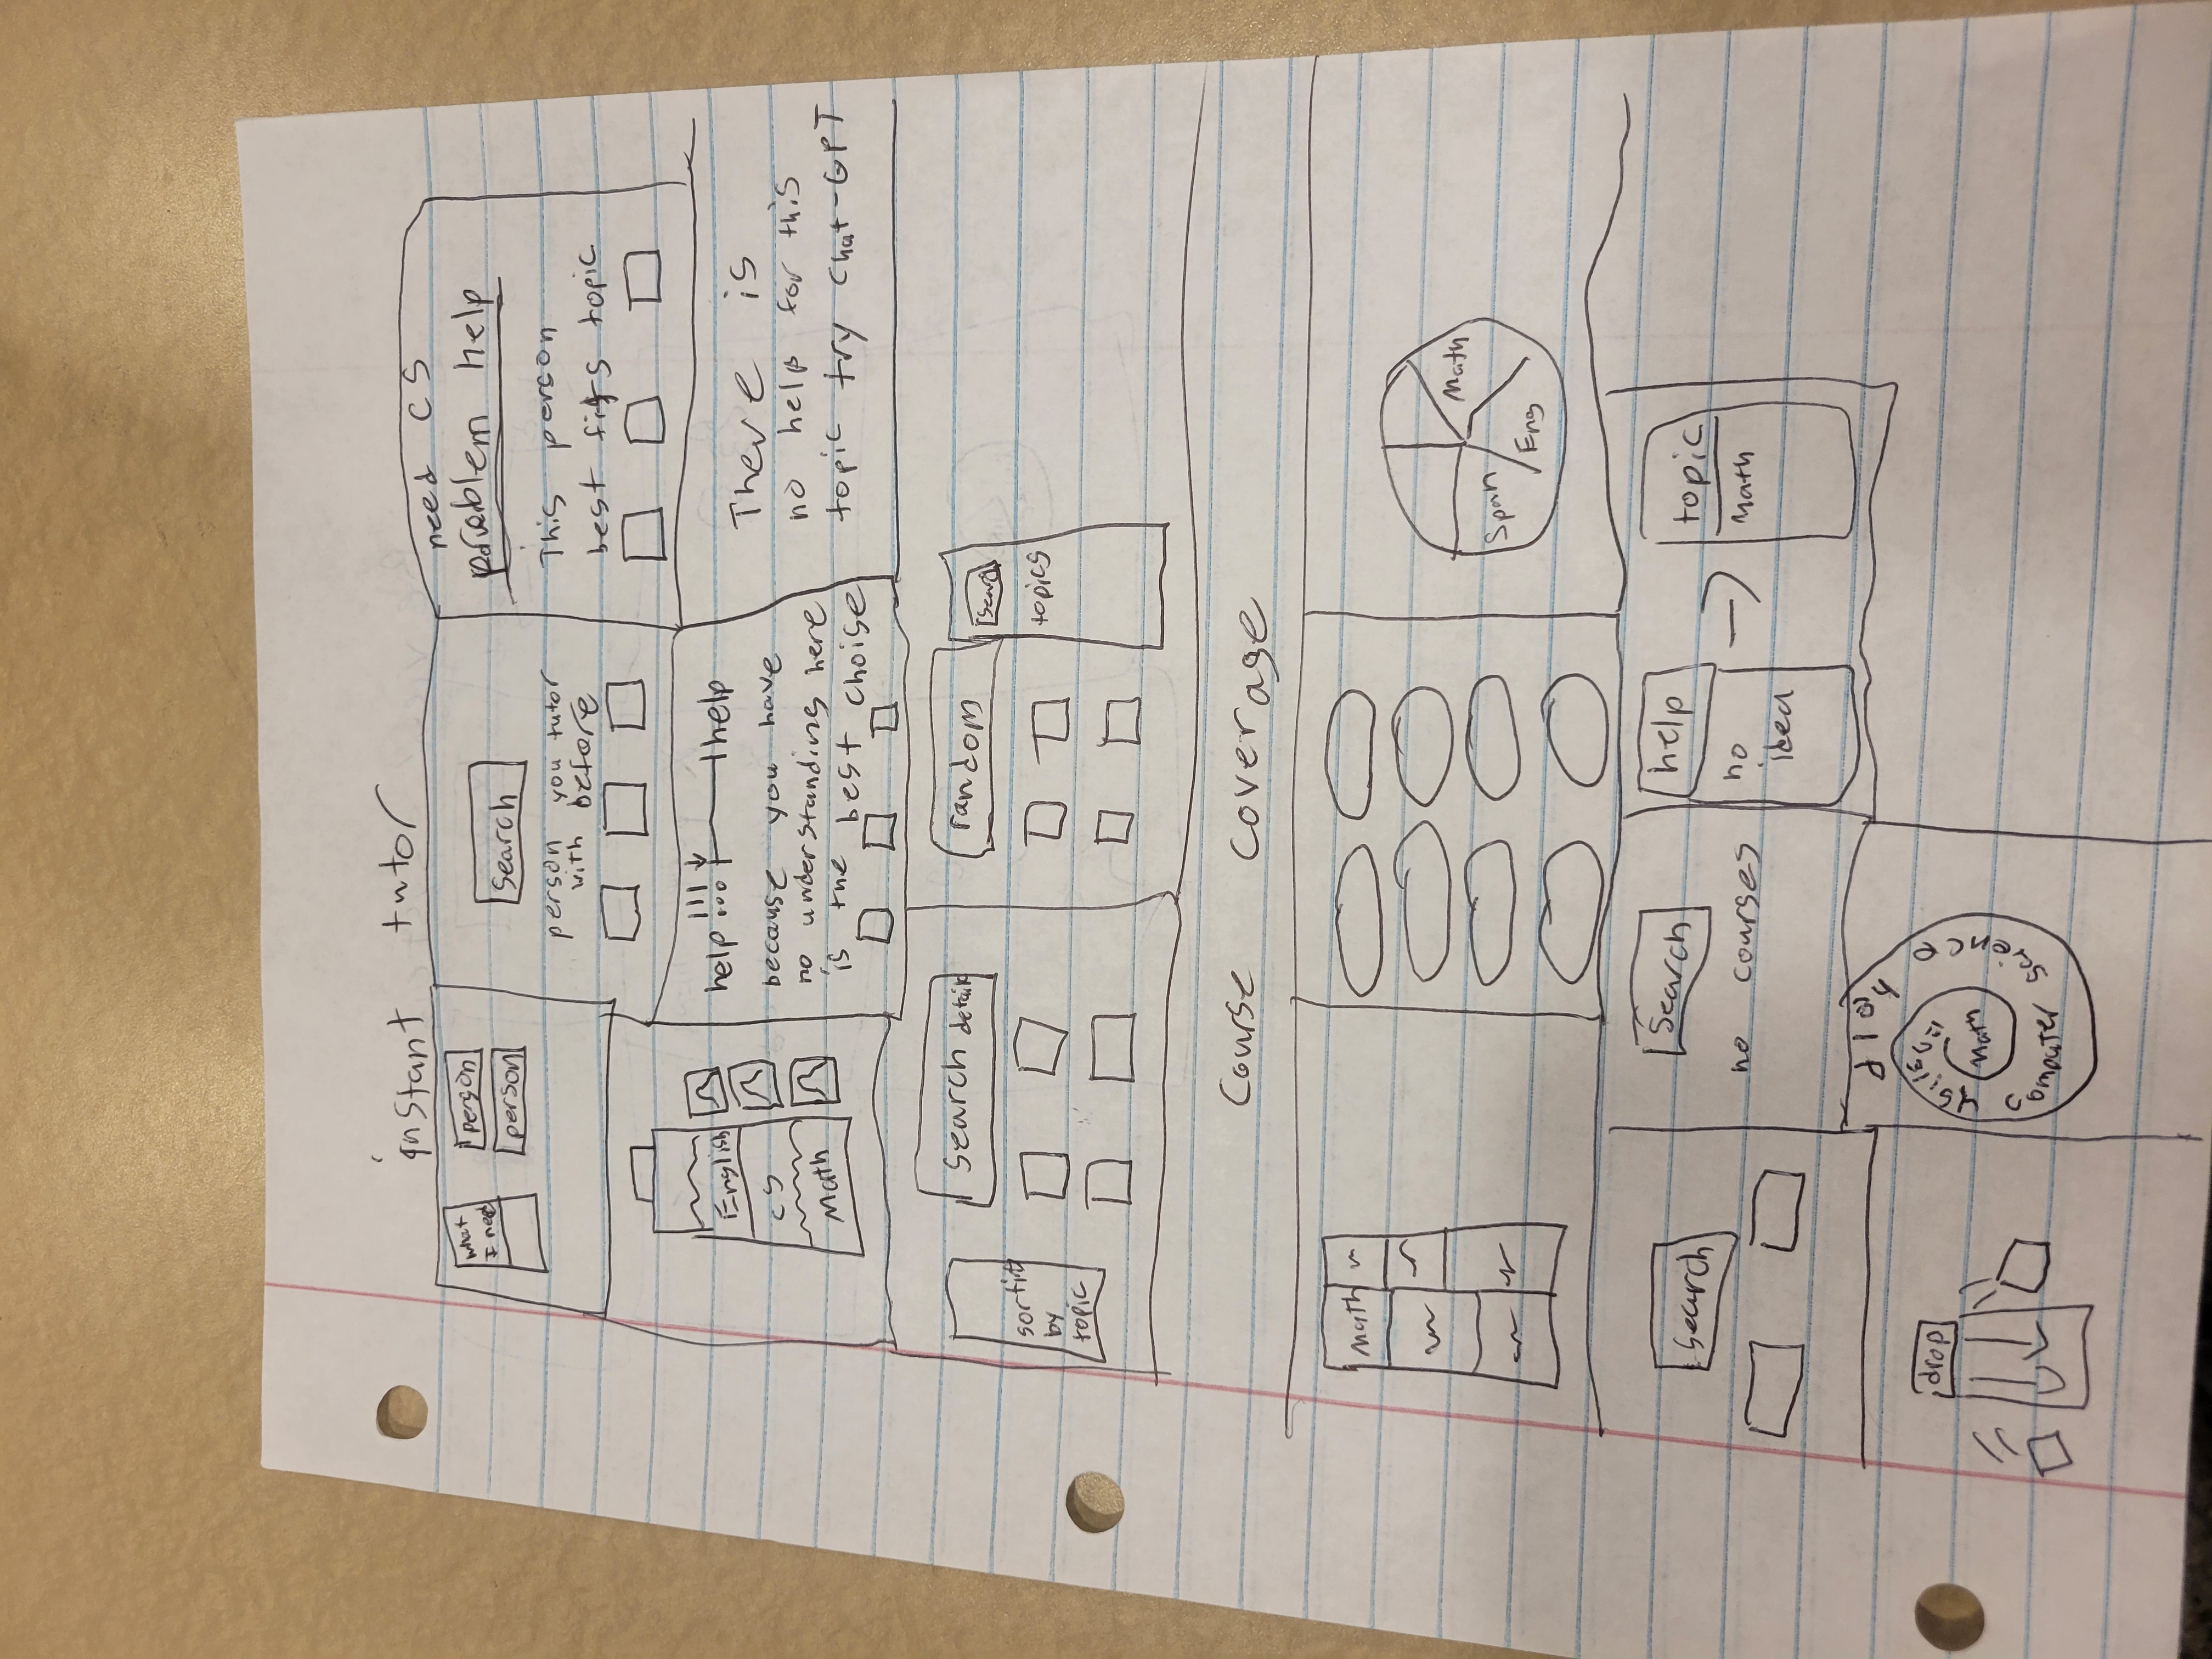 instant tutor
what
I need
person
person
search
person you tutor
with before
need CS
problem help
This person
best fits topic
English
CS
Math
help !!! help
because you have
no understanding here
is the best choise
There is
no help for this
topic try Chat-GPT
sort it
by
topic
Search detail
random
search
topics
Course coverage
Math
Math
Span
Eng
Search
Search
no courses
help
no
idea
topic
Math
drop
Math
English
computer science